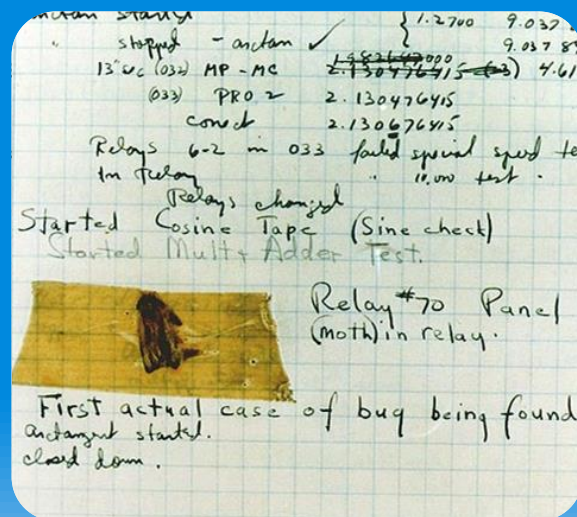 started
{ 1.2700 9.037
" stopped - arctan ✓ 9.037 8
13" uc (032) MP - MC 2.130476415 4.61
(033) PRO 2 2.130476415
correct 2.130676415
Relays 6-2 in 033 failed special speed te
In Relay " 10,000 test .
Relays changed
Started Cosine Tape (Sine check)
Started Mult + Adder Test.
Relay #70 Panel
(moth) in relay.
First actual case of bug being found
arctangent started.
closed down .